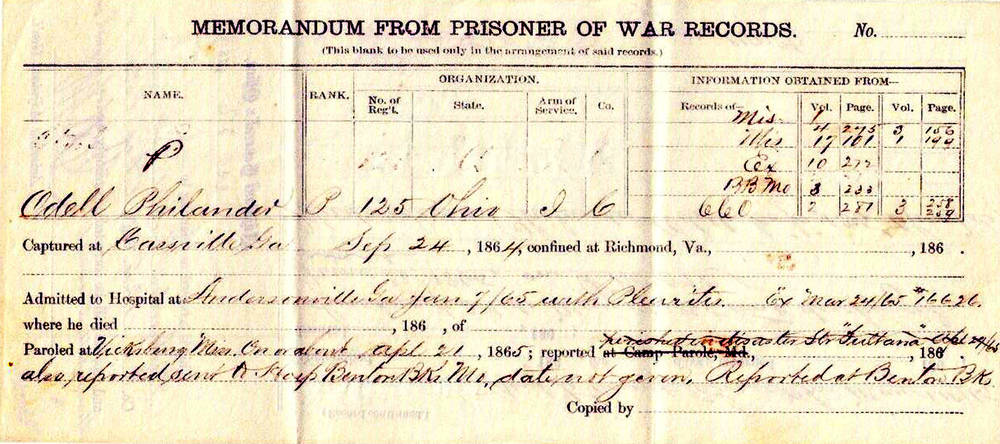 MEMORANDUM FROM PRISONER OF WAR RECORDS. No.
(This blank to be used only in the arrangement of said records.)
NAME. RANK. ORGANIZATION. INFORMATION OBTAINED FROM—
No. of Reg't. State. Arm of Service. Co. Records of— Vol. Page. Vol. Page.
Mis 1
P Mis 4 275 3 156
17 101 1 199
Ex 10
BBMo 3 233
Odell Philander P 125 Ohio I C 660 2 281 3 258
259
Captured at Cassville Ga Sep 24, 1864, confined at Richmond, Va., , 186 .
Admitted to Hospital at Andersonville Ga Jan 7/65 with Pleurites Ex Mar 24/65 #16626.
where he died , 186 , of perished in disaster Str "Sultana" Apl 27/65
Paroled at Vicksburg Miss. On or about Apl 21, 1865; reported at Camp Parole, Md., , 186 .
also, reported sent to Benton BKs Mo, date not given. Reported at Benton BK
Copied by